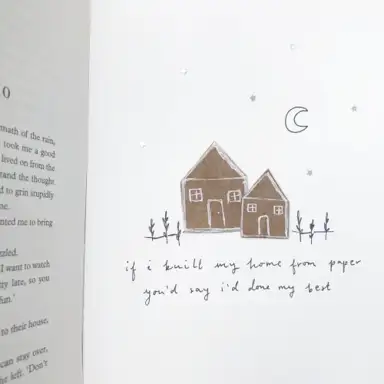 0
math of the rain,
took me a good
lived on from the
rand the thought
d to grin stupidly
me.
nted me to bring
zzled.
I want to watch
ny late, so you
fun.'
to their house,
can stay over,
he left. 'Don't
if i built my home from paper
you'd say i'd done my best